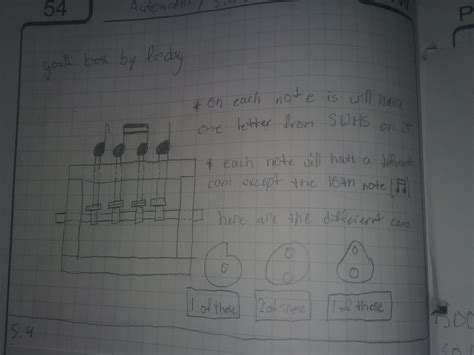 54
Automata / 5.4
goal: box by friday
* on each note is will have
one letter from SWHS on it
* each note will have a different
cam except the 16th note (♬)
here are the different cams
1 of these
2 of these
1 of these
5.4